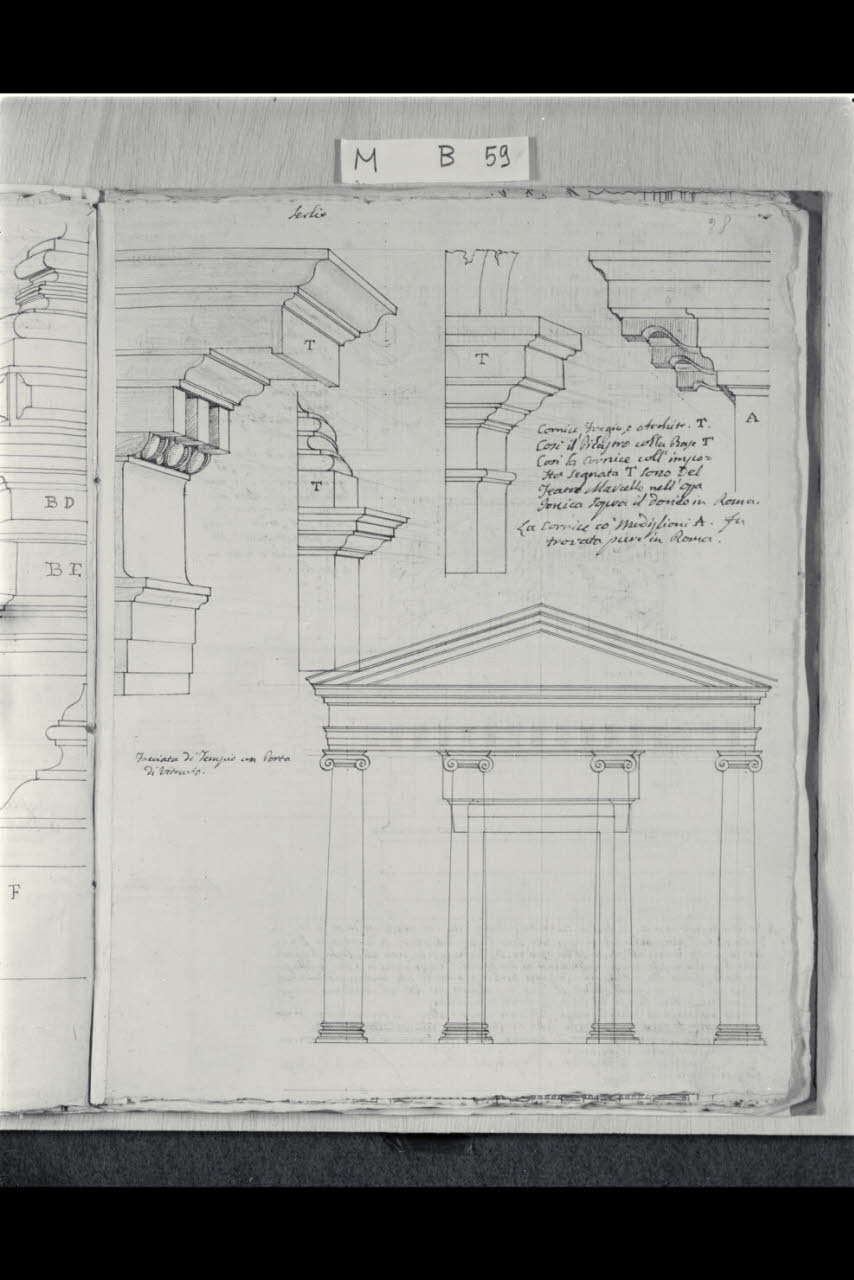 M B 59
Serlio
28
T
T
T
A
Cornice Fregio, e Architr. T.
Così il Pilastro colla Base T
Così la Cornice coll' impo=
sta segnata T sono del
Teatro Marcello nell' opa
Jonica sopra il dorico in Roma.
La Cornice co' Modiglioni A. fu
trovata pure in Roma.
BD
BE
F
Facciata di Tempio con Porta
di Vitruvio.